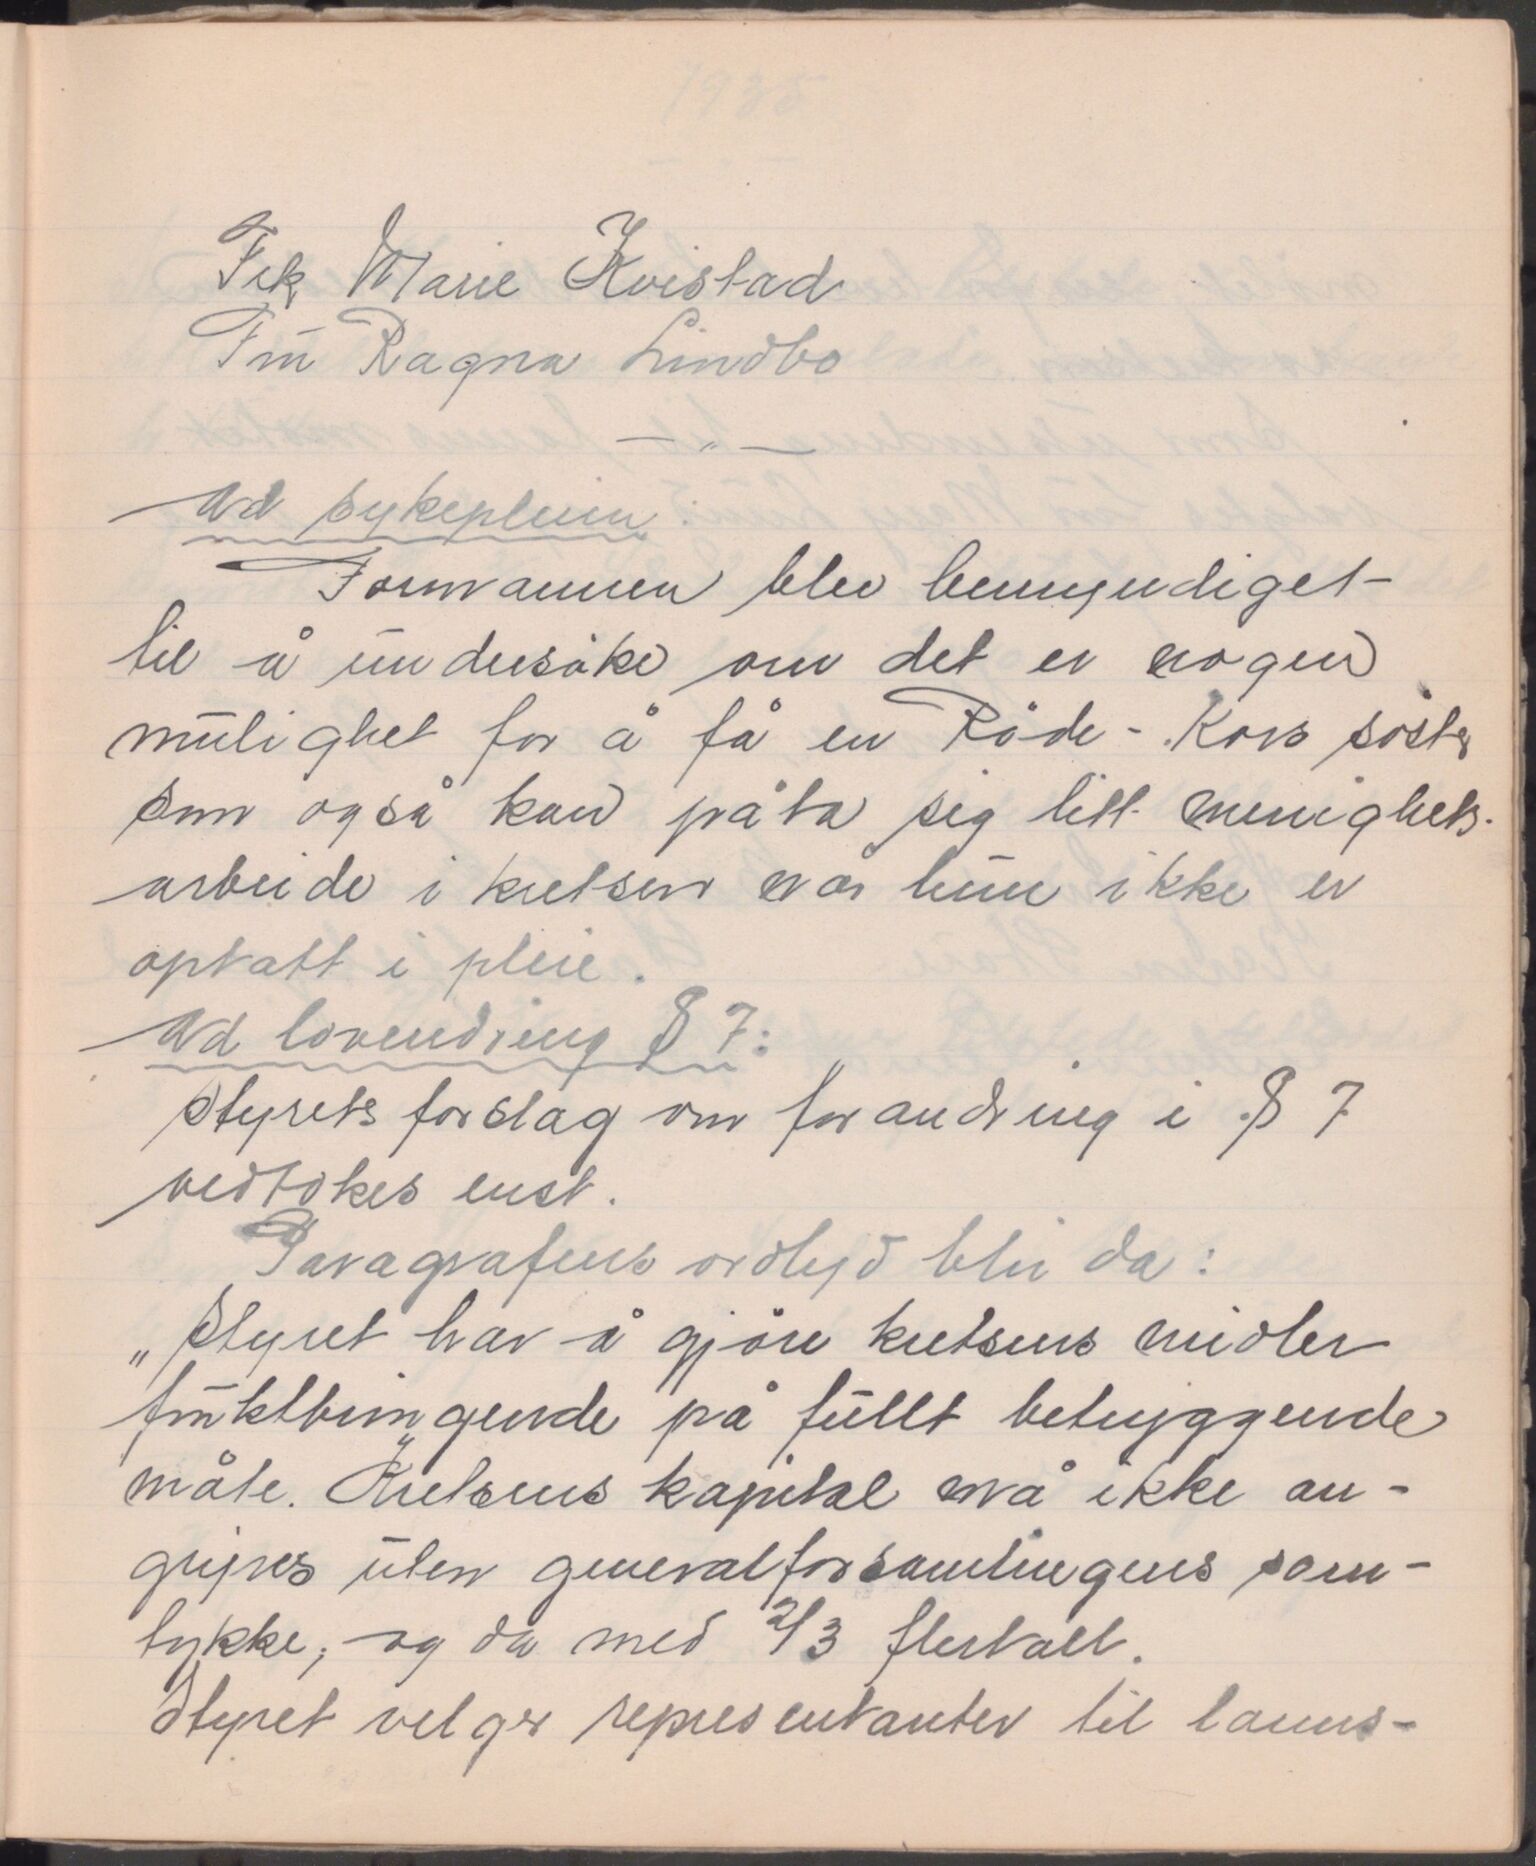 Frk Marie Kvistad
Fru Ragna Lindbo
— „ —
Ad sykepleien:
Formannen blev bemyndiget
til å undersöke om det er nogen
mulighet for å få en Röde-Kors söster
som også kan påta sig litt menighets-
arbeide i kretsen når hun ikke er
optatt i pleie.
Ad lovendring § 7:
Styrets forslag om forandring i § 7
vedtokes enst.
Paragrafens ordlyd blir da:
„Styret har å gjöre kretsens midler
fruktbringende på fullt betryggende
måte. Kretsens kapital må ikke an-
gripes uten generalforsamlingens sam-
tykke, og da med 2/3 flertall.
Styret velger representanter til lanns-